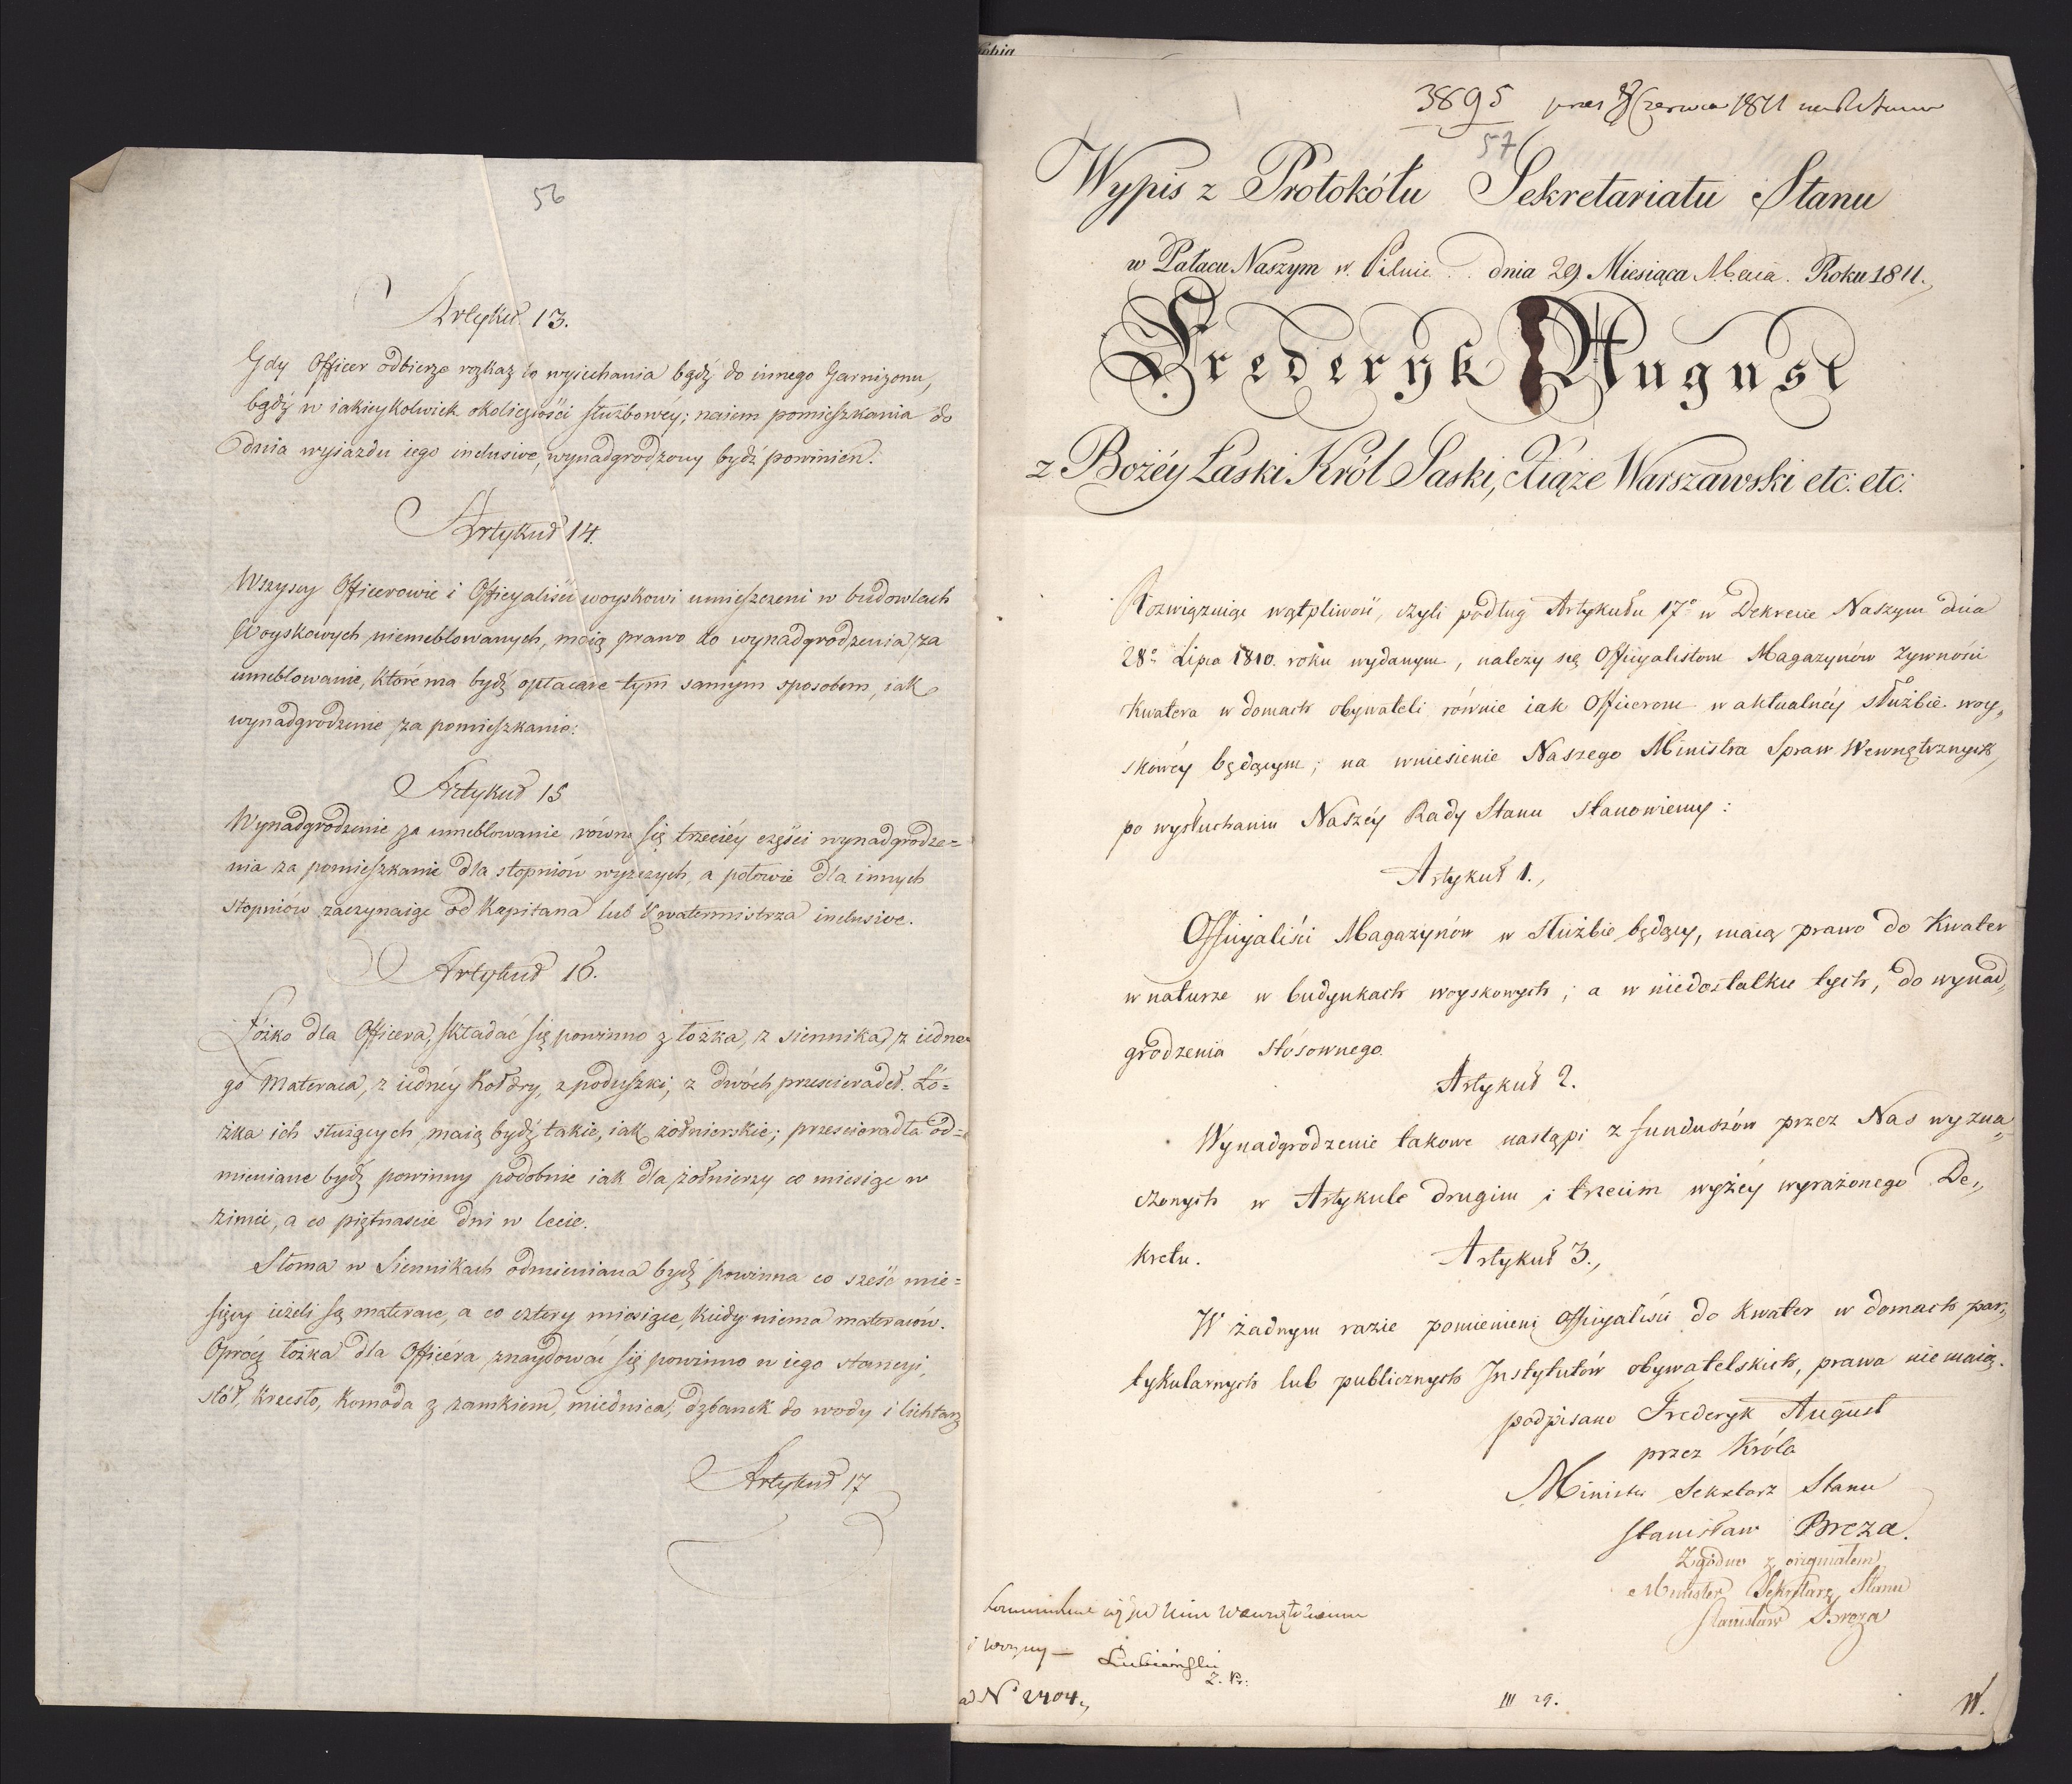 56
Artykuł 13.
Gdy Officer odbierze rozkaz to wyiechania bądź do innego Garnizonu,
bądź w iakieykolwiek okoliczności służbowéy; naiem pomieszkania do
dnia wyiazdu iego inclusive, wynadgrodzony bydź powinien.
Artykuł 14.
Wszyscy Officerowie i Officyaliści woyskowi umieszczeni w budowlach
Woyskowych niemeblowanych, maią prawo do wynadgrodzenia za
umeblowanie, które ma bydź opłacane tym samym sposobem, iak
wynadgrodzenie za pomieszkanie.
Artykuł 15
Wynadgrodzenie za umeblowanie równe się trzeciéy części wynadgrodze=
nia za pomieszkanie dla stopniów wyższych, a połowie dla innych
stopniow zaczynaiąc od Kapitana lub Kwatermistrza inclusive.
Artykuł 16.
Łóżko dla Officera, składać się powinno z łożka, z siennika, z iedne=
go Materaca, z iednéy Kołdry, z poduszki, z dwóch przescieradeł. Łó=
żka ich służących, maią bydź takie, iak żołnierskie; przescieradła od=
mieniane bydź powinny podobnie iak dla żołnierzy co miesiąc w
zimie, a co piętnascie dni w lecie.
Słoma w Siennikach odmieniana bydź powinna co sześć mie=
sięcy ieżeli są materace, a co cztery miesiące, kiedy niema materaców.
Oprócz łożka dla Officéra znaydować się powinno w iego stancyi,
stół, krzesło, Komoda z zamkiem, miednica, dzbanek do wody i lichtarz
Artykuł 17
3895 Czerwca 1811
57
Wypis z Protokółu Sekretariatu Stanu
w Pałacu Naszym w. Pilnic . . dnia 29 Miesiąca Maia. Roku 1811.
Frederyk August
z Bożéy Łaski Król Saski, Xiąże Warszawski etc: etc:
Rozwiązuiąc wątpliwość, czyli podług Artykułu 17º w Dekrecie Naszym dnia
28º Lipca 1810. roku wydanym, należy się Officyalistom Magazynów Żywności
Kwatera w domach obywateli równie iak Officerom w aktualnéy służbie woy„
skowéy będącym; na wniesienie Naszego Ministra Spraw Wewnętrznych,
po wysłuchaniu Naszéy Rady Stanu stanowiemy:
Artykuł 1.,
Officyaliści Magazynów w służbie będący, maią prawo do Kwater
w naturze w budynkach woyskowych; a w niedostatku tych, do wynad„
grodzenia stósownego.
Artykuł 2.
Wynadgrodzenie takowe nastąpi z funduszów przez Nas wyzna„
czonych w Artykule drugim i trzecim wyżéy wyrażonego De„
kretu.
Artykuł 3.,
W żadnym razie pomienieni Officyaliści do Kwater w domach par„
tykularnych lub publicznych Instytutów obywatelskich, prawa nie maią.
podpisano Frederyk August
przez Króla
Minister Sekretarz Stanu
Stanisław Breza.
Zgodno z originałem
Minister Sekretarz Stanu
Stanisław Breza
Wewnętrznemu
Lubieński
ad Nº 2404.,
III 29.
W.